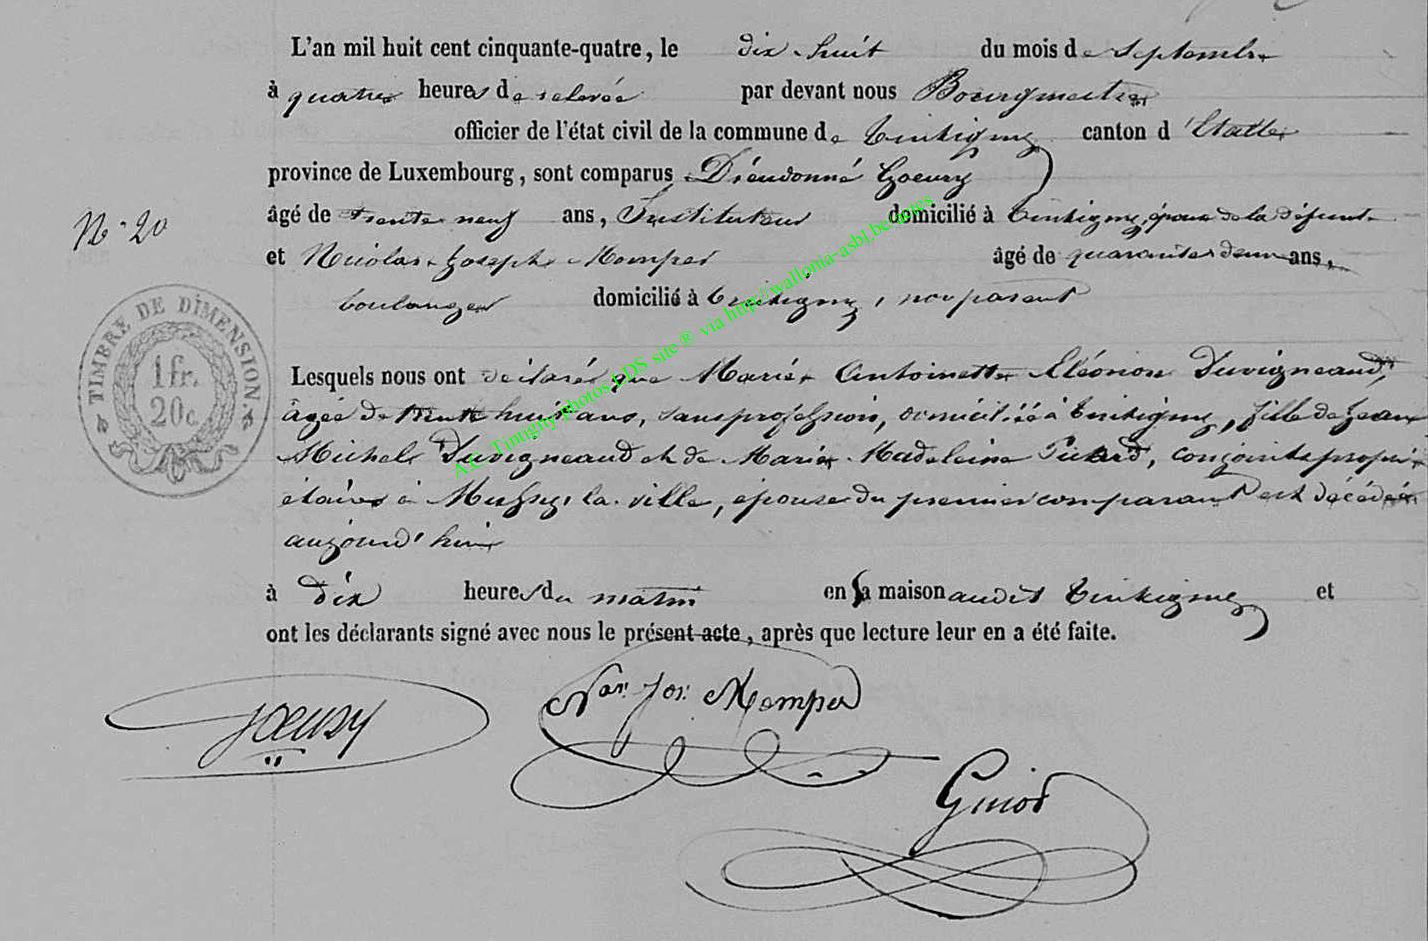 L'an mil huit cent cinquante-quatre, le dix-huit du mois de septembre
à quatre heures de relevée par devant nous Bourgmestre
officier de l'état civil de la commune de Tintigny canton d'Etalle
province de Luxembourg, sont comparus Dieudonné Goeury
N° 20
âgé de trente neuf ans, Instituteur domicilié à Tintigny, époux de la défunte
et Nicolas Joseph Momper âgé de quarante deux ans,
boulanger domicilié à Tintigny, non parent
TIMBRE DE DIMENSION
1 fr.
20 c.
Lesquels nous ont déclaré que Marie Antoinette Eléonore Duvigneaud,
âgée de trente huit ans, sans profession, domiciliée à Tintigny, fille de Jean
Michel Duvigneaud et de Marie Madeleine conjoints propri-
étaires à Mussy la ville, épouse du premier comparant est décédée
aujourd'hui
à dix heures du matin en sa maison audit Tintigny et
ont les déclarants signé avec nous le présent acte, après que lecture leur en a été faite.
Goeury
Jos. Momper
A.C. Tintigny photos LDS site ® via http://wallonia-asbl.be/actes